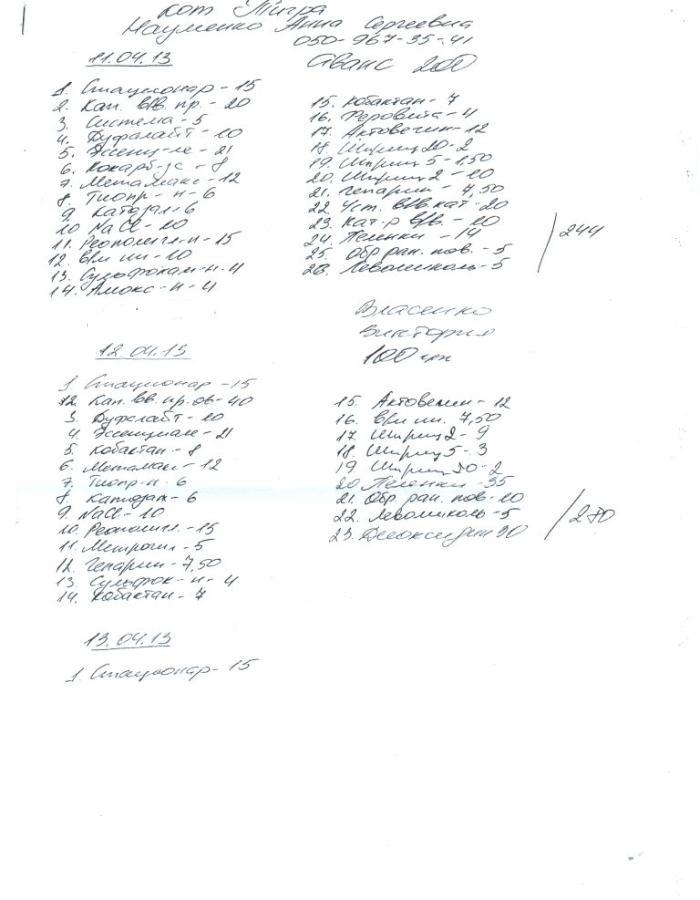 кот Тигра
Науменко Анна Сергеевна
050-967-35-41
11.04.13
Аванс 200
1. Стационар - 15
2. Кап. в/в. пр. - 20
3. Система - 5
4. Дуфалайт - 10
5. Эссенц-ле - 21
6. Кокарб-за - 8
7. Метамакс - 12
8. Тиопр-н - 6
9. Катозал - 6
10 NaCl - 10
11. Реополигл-н - 15
12. в/м ин. - 10
13. Сульфокам-н - 4
14. Амокс-н - 4
15. Кобактан - 7
16. Феровита - 4
17. Актовегин - 12
18 Шприц 20 - 2
19. Шприц 5 - 1,50
20. Шприц 2 - 10
21. Гепарин - 7,50
22 Уст. в/в. кат - 20
23. Кат-р в/в. - 10
24. Пеленки - 14
25. Обр ран. пов. - 5
26. Левомиколь - 5
/ 244
Власенко
Виктория
100 грн
12.04.13
1. Стационар - 15
2. Кап. вв. пр. ов - 40
3. Дуфалайт - 10
4. Эссенциале - 21
5. Кобактан - 8
6. Метамакс - 12
7. Тиопр-н - 6
8. Катозал - 6
9. NaCl - 10
10. Реополигл. - 15
11. Метрогил - 5
12. Гепарин - 7,50
13. Сульфок-н - 4
14. Кобактан - 7
15. Актовегин - 12
16. в/м ин. 7,50
17. Шприц 2 - 9
18. Шприц 5 - 3
19 Шприц 20 - 2
20 Пеленки - 35
21. Обр ран. пов - 10
22. Левомиколь - 5
23. Диоксидин 30
/ 280
13.04.13
1. Стационар - 15